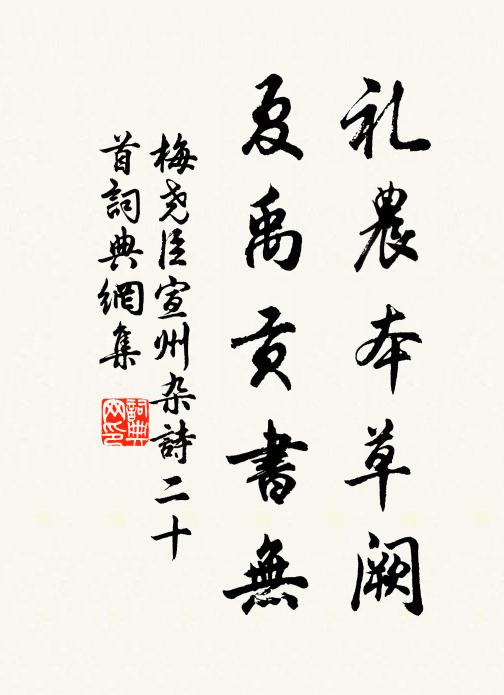 礼農本草阙
夏禹贡書無
梅尧臣宣州杂詩二十
首詞典網集
詞典
网印